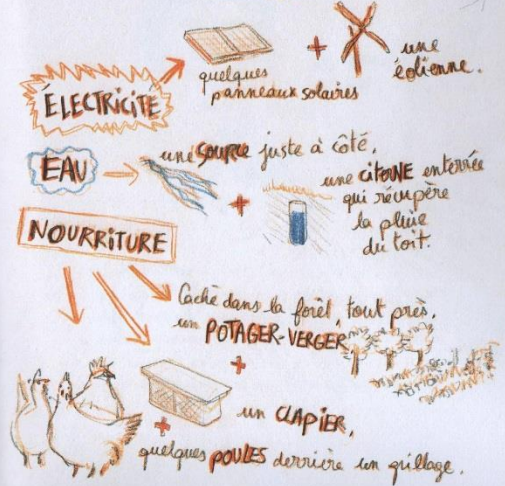 ÉLECTRICITÉ
quelques
panneaux solaires
+
une
éolienne.
EAU
une source juste à côté,
+
une citerne enterrée
qui récupère
la pluie
du toit.
NOURRITURE
Caché dans la forêt, tout près,
un POTAGER-VERGER
+
un CLAPIER,
+
quelques POULES derrière un grillage.